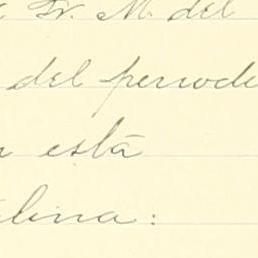 Fr. M. del
del periodo
está
lina: